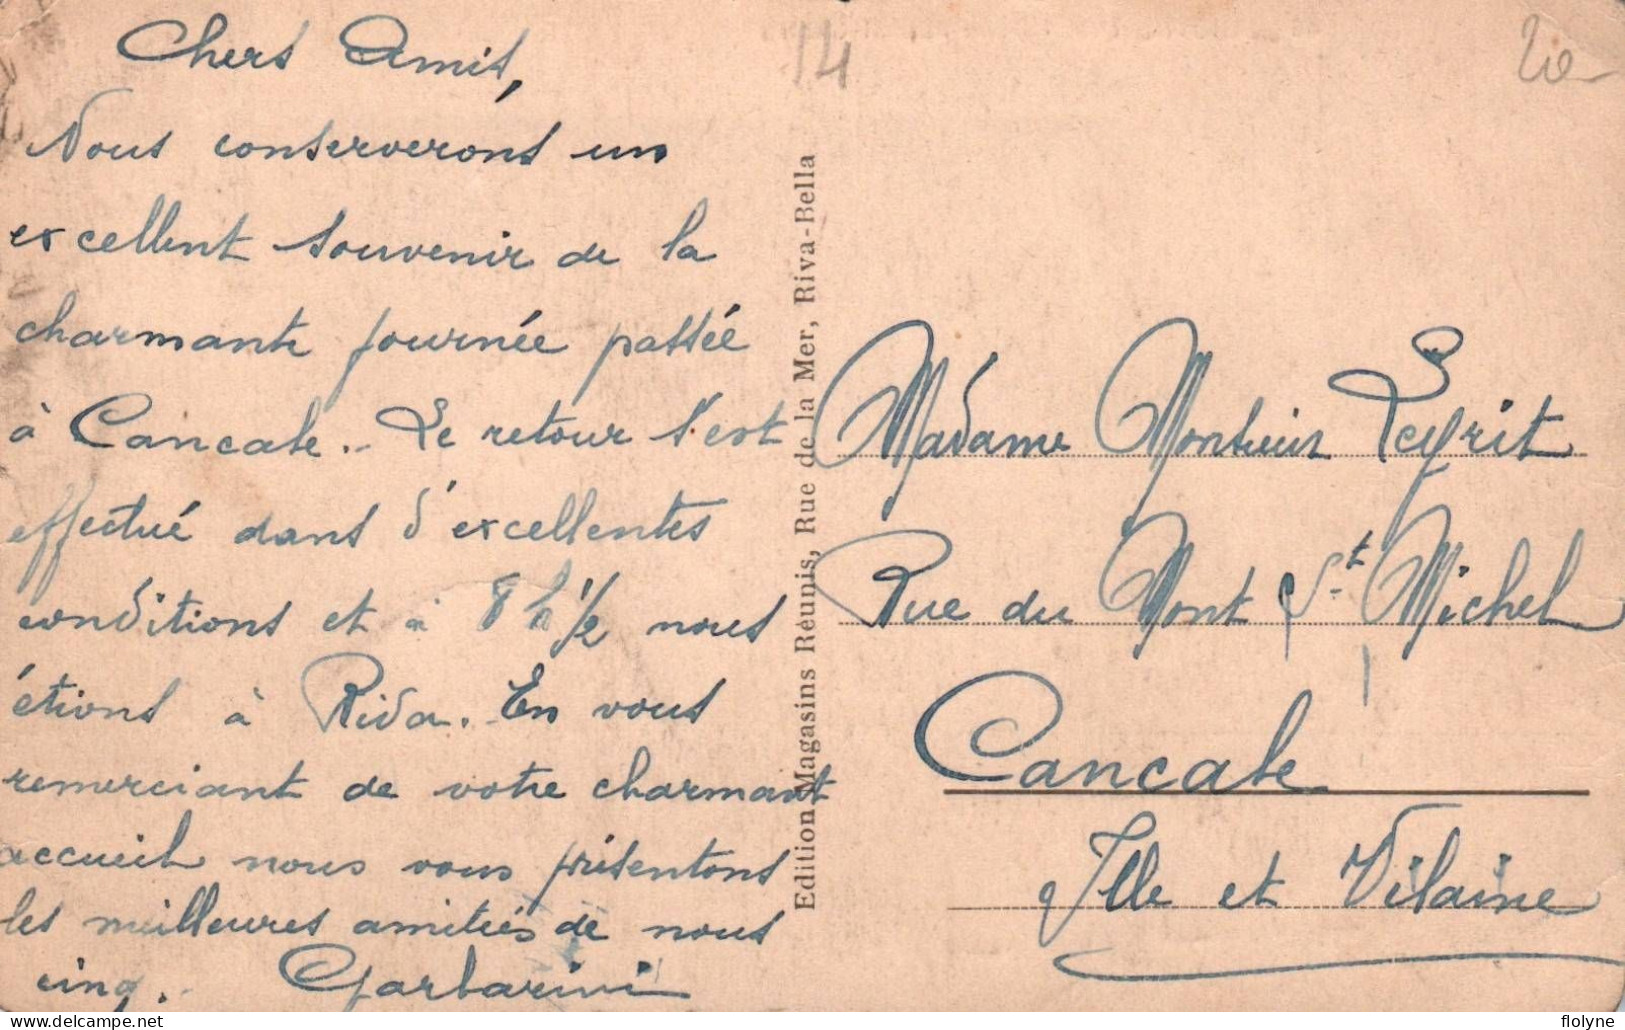 Chers Amis,
Nous conserverons un
excellent souvenir de la
charmante journée passée
à Cancale. Le retour s'est
effectué dans d'excellentes
conditions et à 8 h 1/2 nous
étions à Riva. En vous
remerciant de votre charmant
accueil nous vous présentons
les meilleures amitiés de nous
cinq. Garbarini
14
20
Edition Magasins Réunis, Rue de la Mer, Riva-Bella
Madame Monsieur Leyrit
Rue du Mont St Michel
Cancale
Ille et Vilaine
flolyne